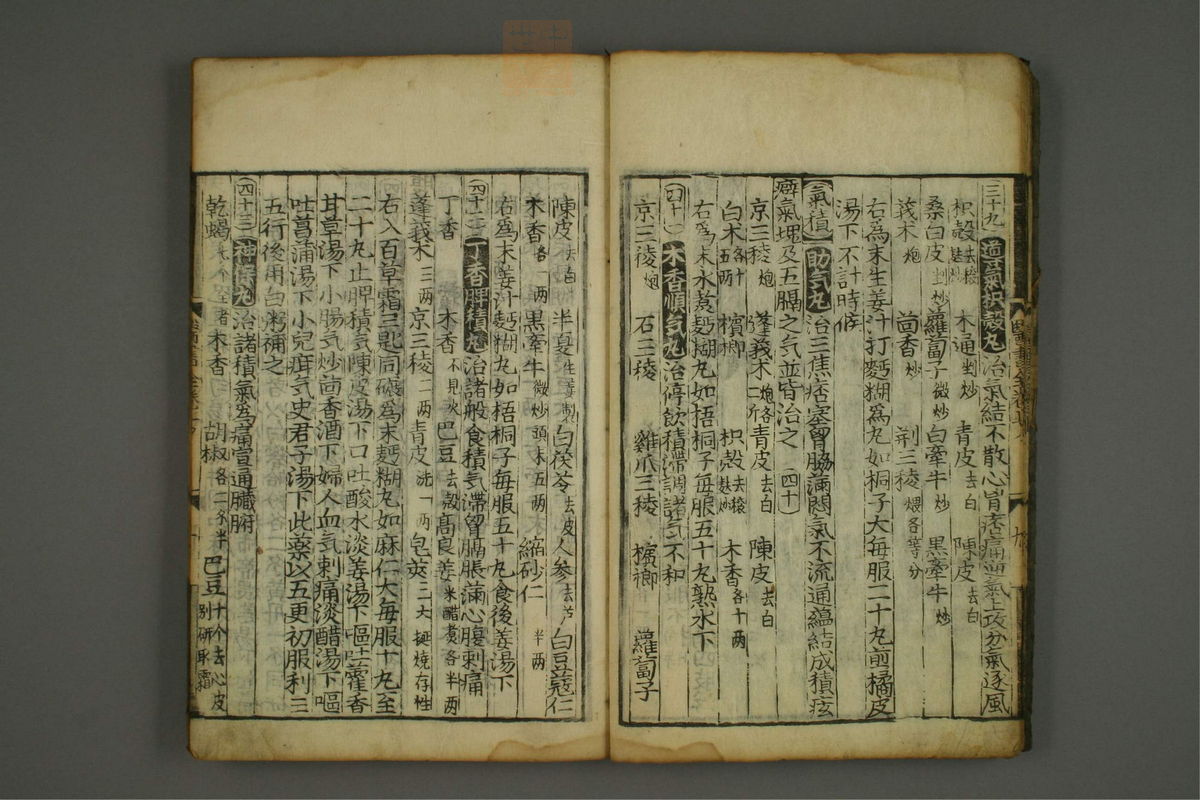 三十九 通氣枳殼丸 治氣結不散心胷痞痛逆氣上攻分氣逐風
枳殼去穣麸炒 木通剉炒 青皮去白 陳皮去白
桑白皮剉炒 蘿蔔子微炒 白牽牛炒 黒牽牛炒
莪术炮 茴香炒 荆三稜煨各等分
右為末生姜汁打麪糊為丸如桐子大每服二十丸煎橘皮
湯下不計時候
氣積 助気丸 治三焦痞塞胷脇滿悶氣不流通蘊結成積痃
癖氣塊及五膈之気並皆治之 四十
京三稜炮 蓬莪术炮各二斤 青皮去白 陳皮去白
白术各十五两 檳榔 枳殼去穣麸炒 木香各十两
右為末水煮麪糊丸如梧桐子每服五十丸熟水下
四十一 木香順気丸 治停飲積滯調諸気不和
京三稜炮 石三稜 雞爪三稜 檳榔 蘿蔔子
陳皮去白 半夏生薑製 白茯苓去皮 人参去芦 白豆蔻仁
木香各一两 黒牽牛微炒頭末五两 縮砂仁半两
右為末姜汁麪糊丸如梧桐子每服五十丸食後姜湯下
四十二 丁香脾積丸 治諸般食積気滯胷膈脹滿心腹刺痛
丁香 木香不見火 巴豆去殼 髙良姜米醋煮各半两
蓬莪术三两 京三稜二两 青皮洗一两 皂莢三大挺燒存性
右入百草霜三匙同碾為末麪糊丸如麻仁大每服十丸至
二十丸止脾積気陳皮湯下口吐酸水淡姜湯下嘔吐藿香
甘草湯下小腸気炒茴香酒下婦人血気刺痛淡醋湯下嘔
吐菖蒲湯下小兒疳気史君子湯下此藥以五更初服利三
五行後用白粥補之
四十三 神保丸 治諸積氣為痛宣通臟腑
乾蝎 木香 胡椒各二 巴豆十个去心皮別研取霜